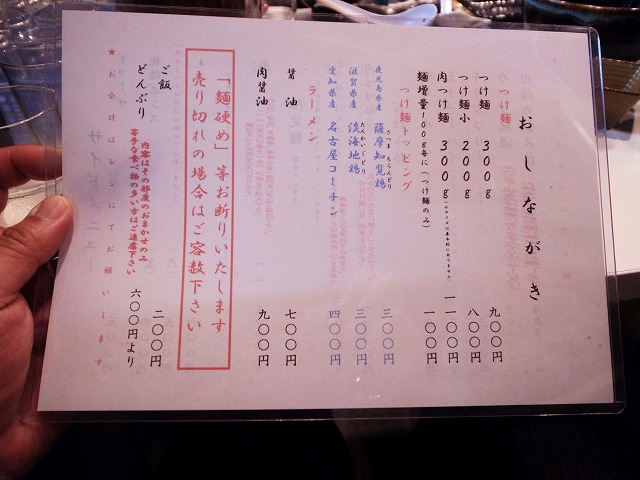 おしながき
つけ麺
つけ麺 300g 九〇〇円
つけ麺小 200g 八〇〇円
肉つけ麺 300g 一一〇〇円
麺増量100g毎に(つけ麺のみ) 一〇〇円
つけ麺トッピング
鹿児島県産 薩摩知覧鶏 三〇〇円
さつま ちらんどり
滋賀県産 淡海地鶏 三〇〇円
たんかいじどり
愛知県産 名古屋コーチン 四〇〇円
ラーメン
醤油 七〇〇円
肉醤油 九〇〇円
「麺硬め」等お断りいたします
売り切れの場合はご容赦下さい
ご飯 二〇〇円
どんぶり 六〇〇円より
内容はその都度のおまかせのみ
苦手な食べ物の多い方はご遠慮下さい
★お会計はレジにてお願いします